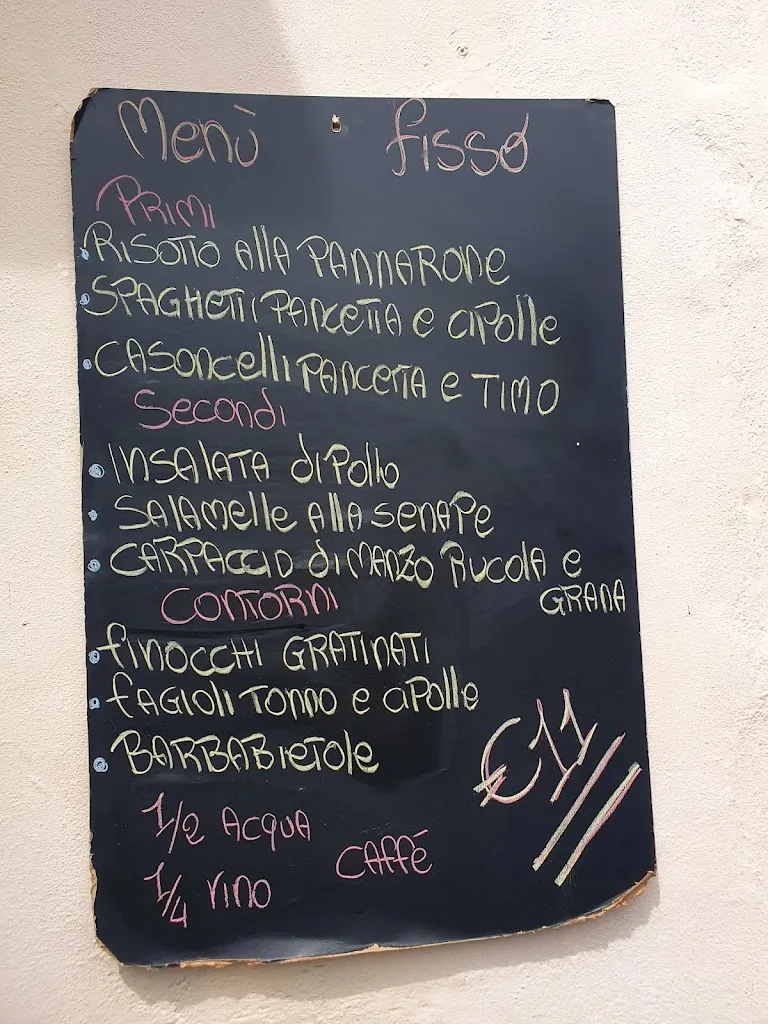 Menù fisso
PRIMI
RISOTTO allA PANNARONE
SPAGHETTI PANCETTA e ciPolle
CASONcelli PANCETTA e TIMO
Secondi
INSALATA di Pollo
SALAMelle AllA SENAPe
CARPACCIO di MANZO RUCOLA e
GRANA
CONTORNI
fINOCCHI GRATINATI
fAGIOLI TONNO e ciPolle
BARBABIeTOle
€11
1/2 ACQUA
CAffé
1/4 VINO